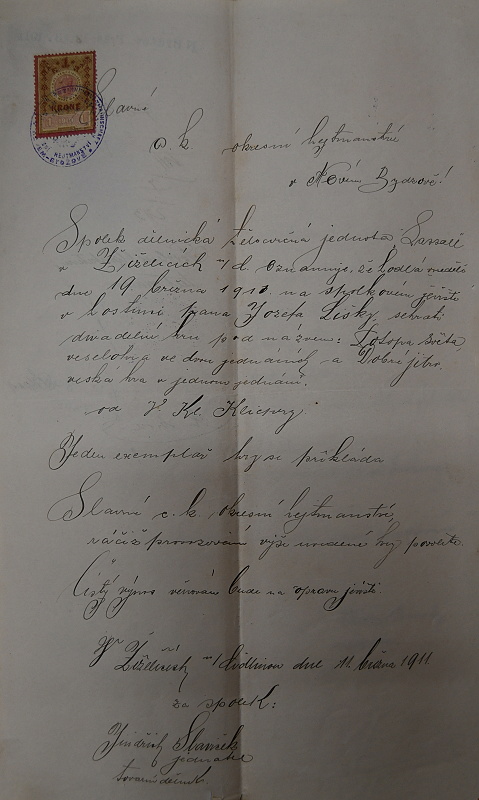 1
KRONE
Slavné
c. k. okresní hejtmanství
v Novém Bydžově!
Spolek dělnická tělocvičná jednota Lassalle
v Žiželicích n/C. oznamuje, že hodlá v neděli
dne 19 března 1911 na spolkovém jevišti
v hostinci pana Josefa Lisky, sehráti
divadelní hru pod názvem: Potopa světa,
veselohra ve dvou jednáních a Dobré jitro,
veská hra v jednom jednání.
od V. Kl. Klicpery
Jeden exemplář hry se přikládá
Slavné c. k. okresní hejtmanství,
račiž provozování výše uvedené hry povoliti.
Čistý výnos věnován bude na opravu jeviště.
V Žiželicích n/Cidlinou dne 11. března 1911.
za spolek:
Jindřich
jednatel